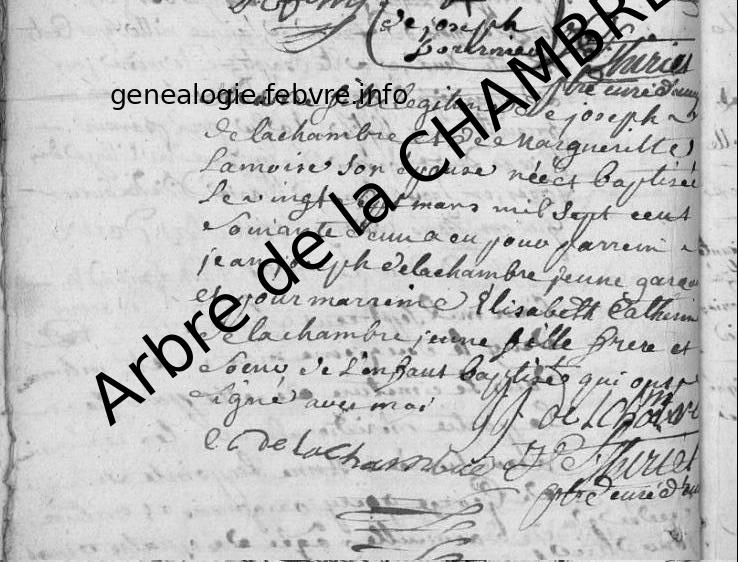 de joseph
pourmieu
Thuriet
ptre curé
genealogie.febvre.info
fille legitime de joseph
delachambre et de Margueritte
Lamoise son epouse née et baptisée
Le vingt sept mars mil sept cent
soixante deux a eu pour parrein
jean joseph delachambre jeune garcon
et pour marreine Elisabeth Catherin
delachambre jeune fille frere et
soeur de L'enfant baptisée qui ont
signé avec moi
jj de LChambre
e c De La Chambre
Thuriet
ptre curé
Arbre de la CHAMBRE